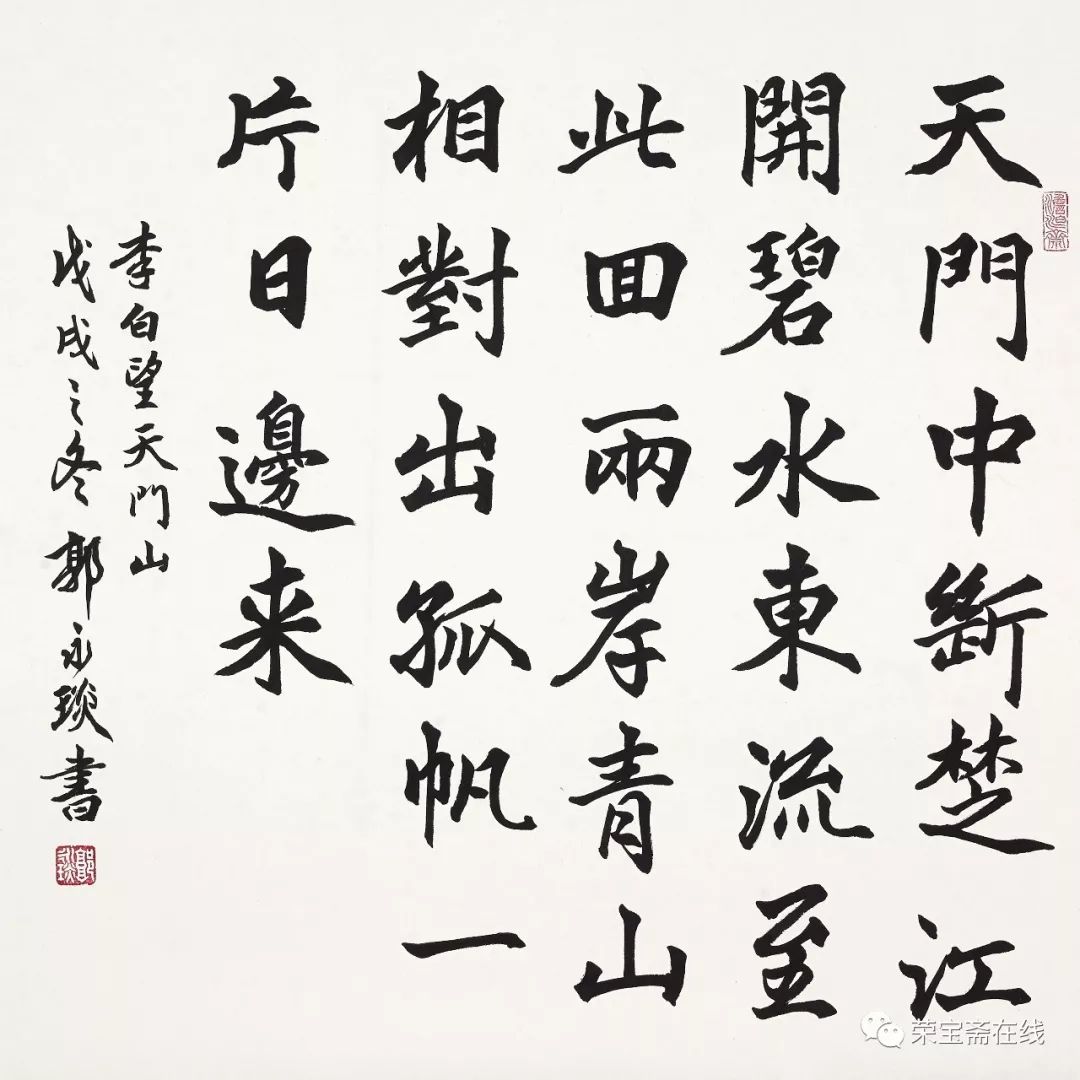 天門中斷楚江
開碧水東流至
此回兩岸青山
相對出孤帆一
片日邊来
李白望天門山
戊戌之冬郭永琰書
郭永琰
荣宝斋在线